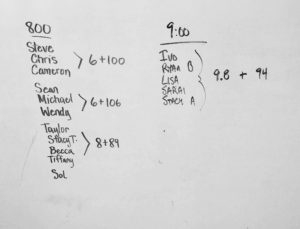 800
Steve
Chris
Cameron
6+100
Sean
Michael
Wendy
6+106
Taylor
Stacy T.
Becca
Tiffany
8+89
Sol
9:00
Ivo
Ryan B
Lisa
Sarai
Stacy A
9.8 + 94